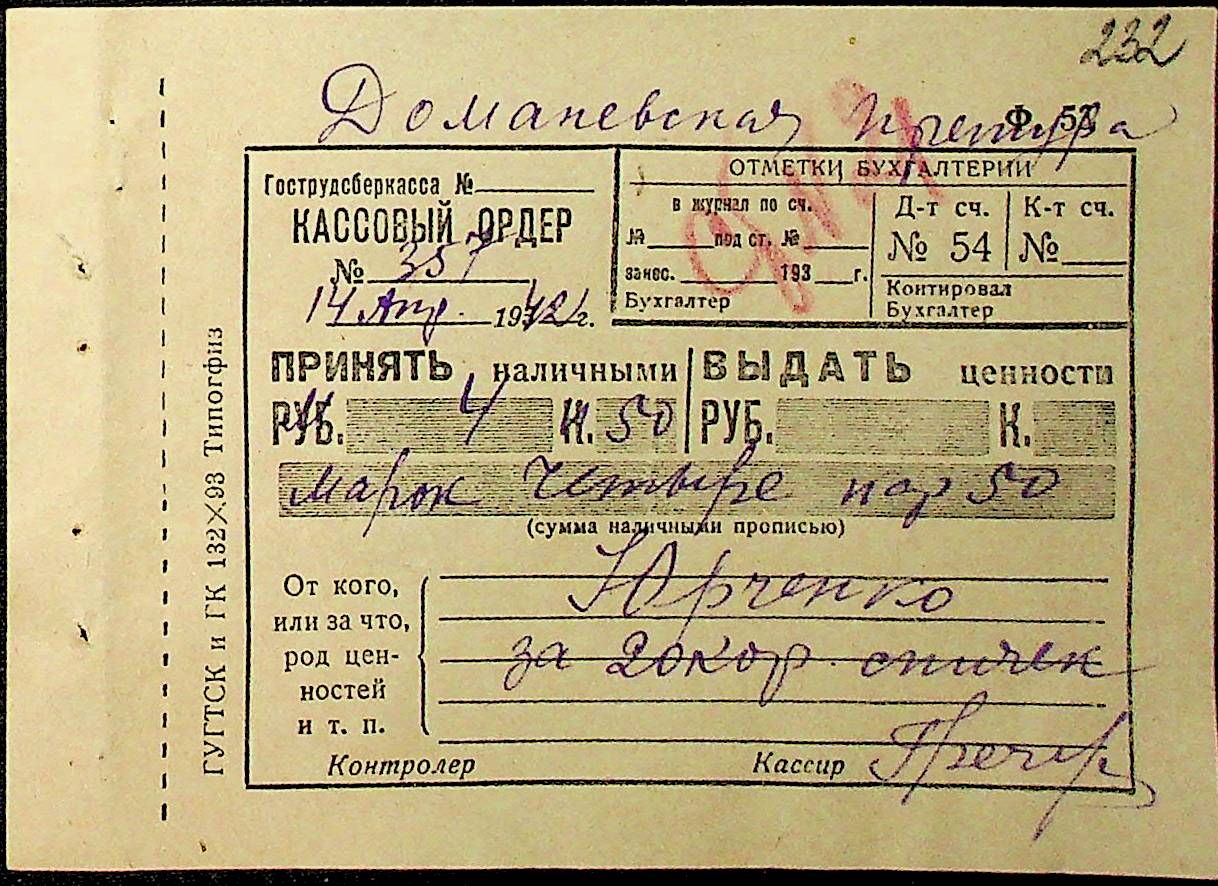 232
Доманевская претура
Ф. 57
Гострудсберкасса №
КАССОВЫЙ ОРДЕР
№ 357
14 Апр. 1942 г.
ОТМЕТКИ БУХГАЛТЕРИИ
в журнал по сч.
№ под ст. №
занес. 193 г.
Бухгалтер
Д-т сч.
№ 54
К-т сч.
№
Контировал
Бухгалтер
ПРИНЯТЬ наличными
РУБ. 4 К. 50
ВЫДАТЬ ценности
РУБ. К.
марок четыре пф 50
(сумма наличными прописью)
От кого,
или за что,
род цен-
ностей
и т. п.
Юрченко
за 20 кор. спичек
Контролер
Кассир
ГУГТСК и ГК 132X.93 Типогфиз